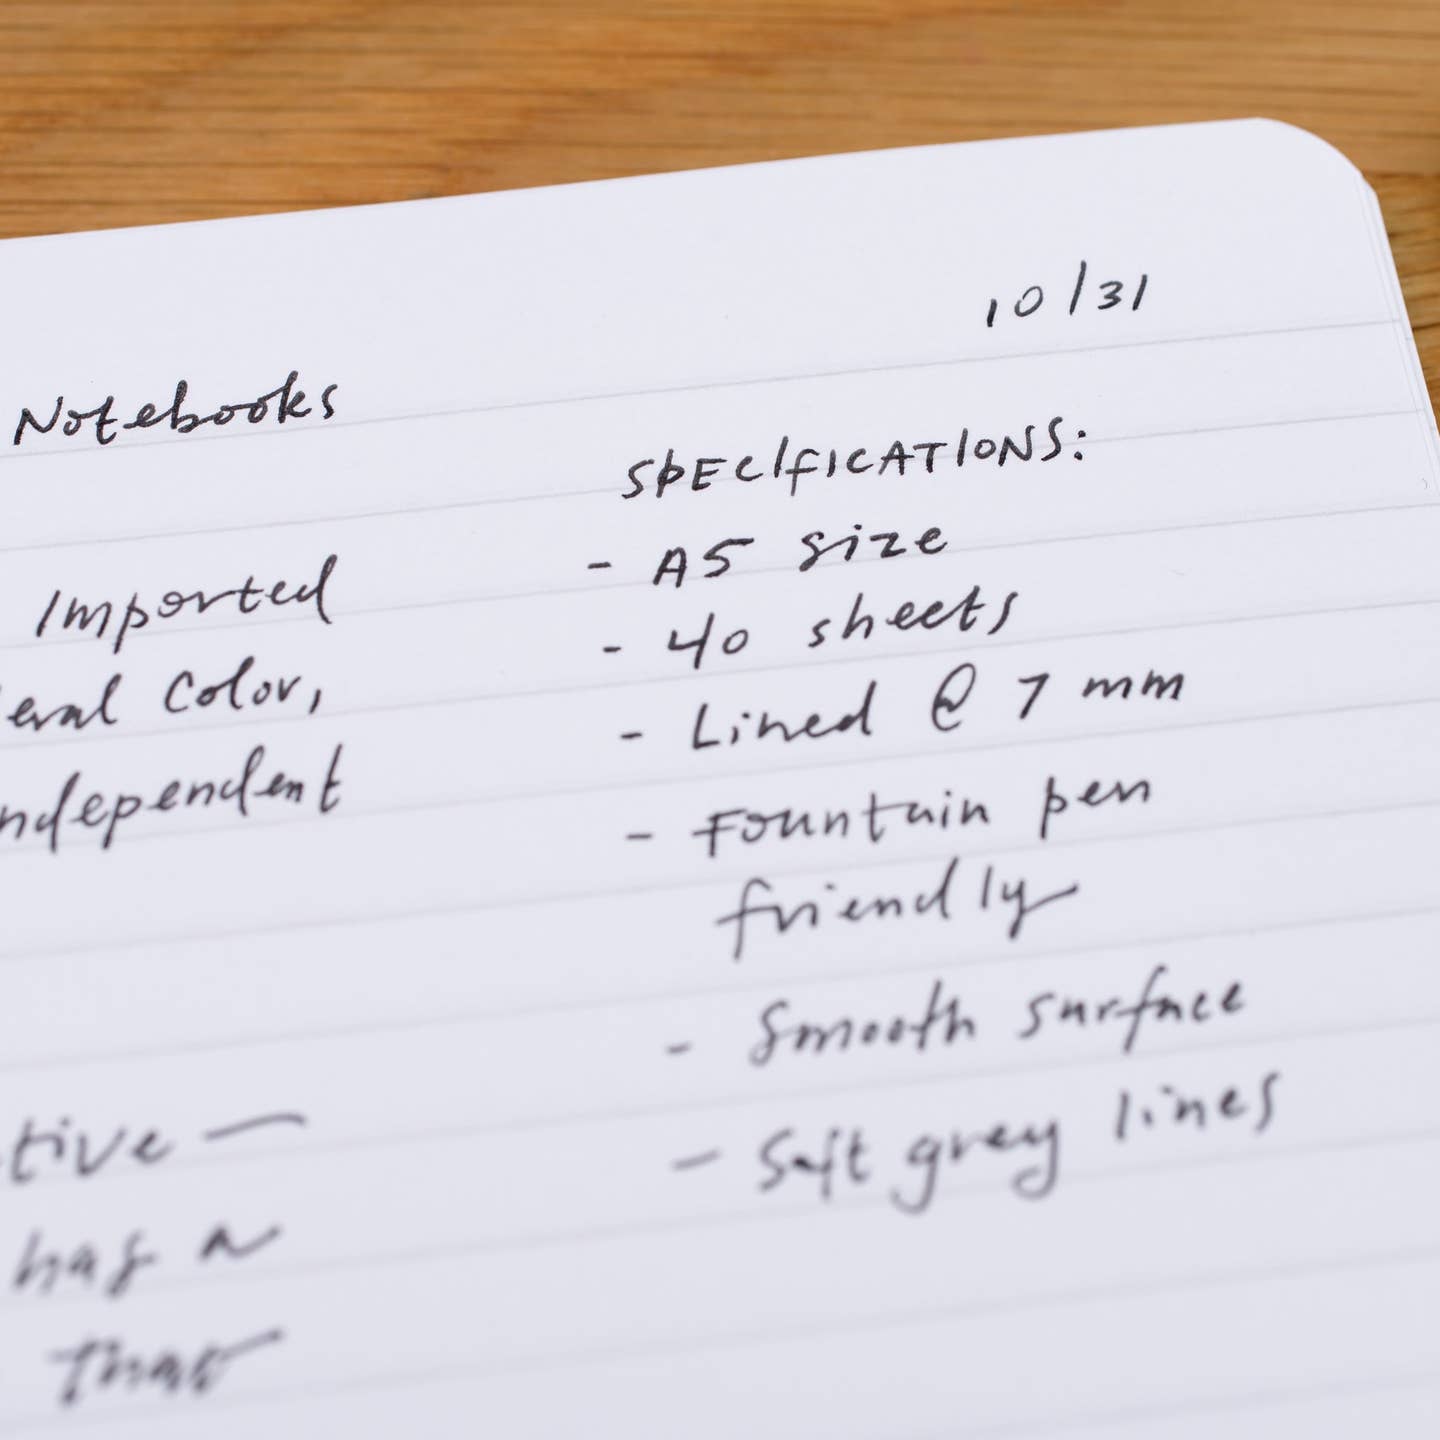 10/31
Notebooks
Imported
Color,
tive —
has a
that
SPECIFICATIONS:
- A5 size
- 40 sheets
- Lined @ 7 mm
- Fountain pen
friendly
- Smooth surface
- Soft grey lines